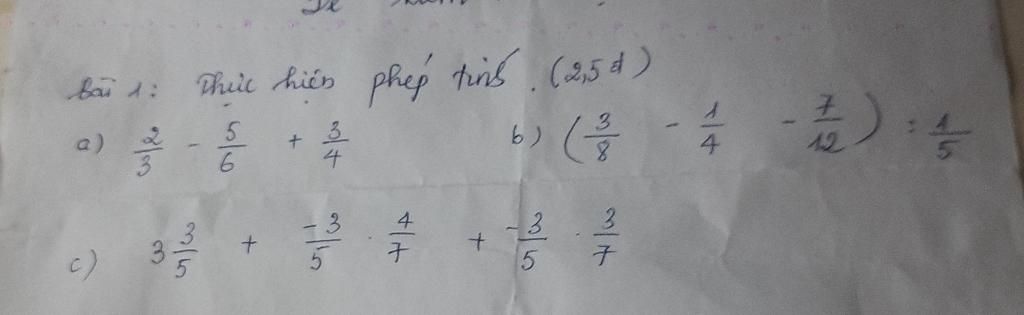 Bài 1: Thực hiện phép tính. (2,5đ)
a) 2/3 - 5/6 + 3/4 b) (3/8 - 1/4 - 7/12) : 1/5
c) 3 3/5 + -3/5 . 4/7 + -3/5 . 3/7